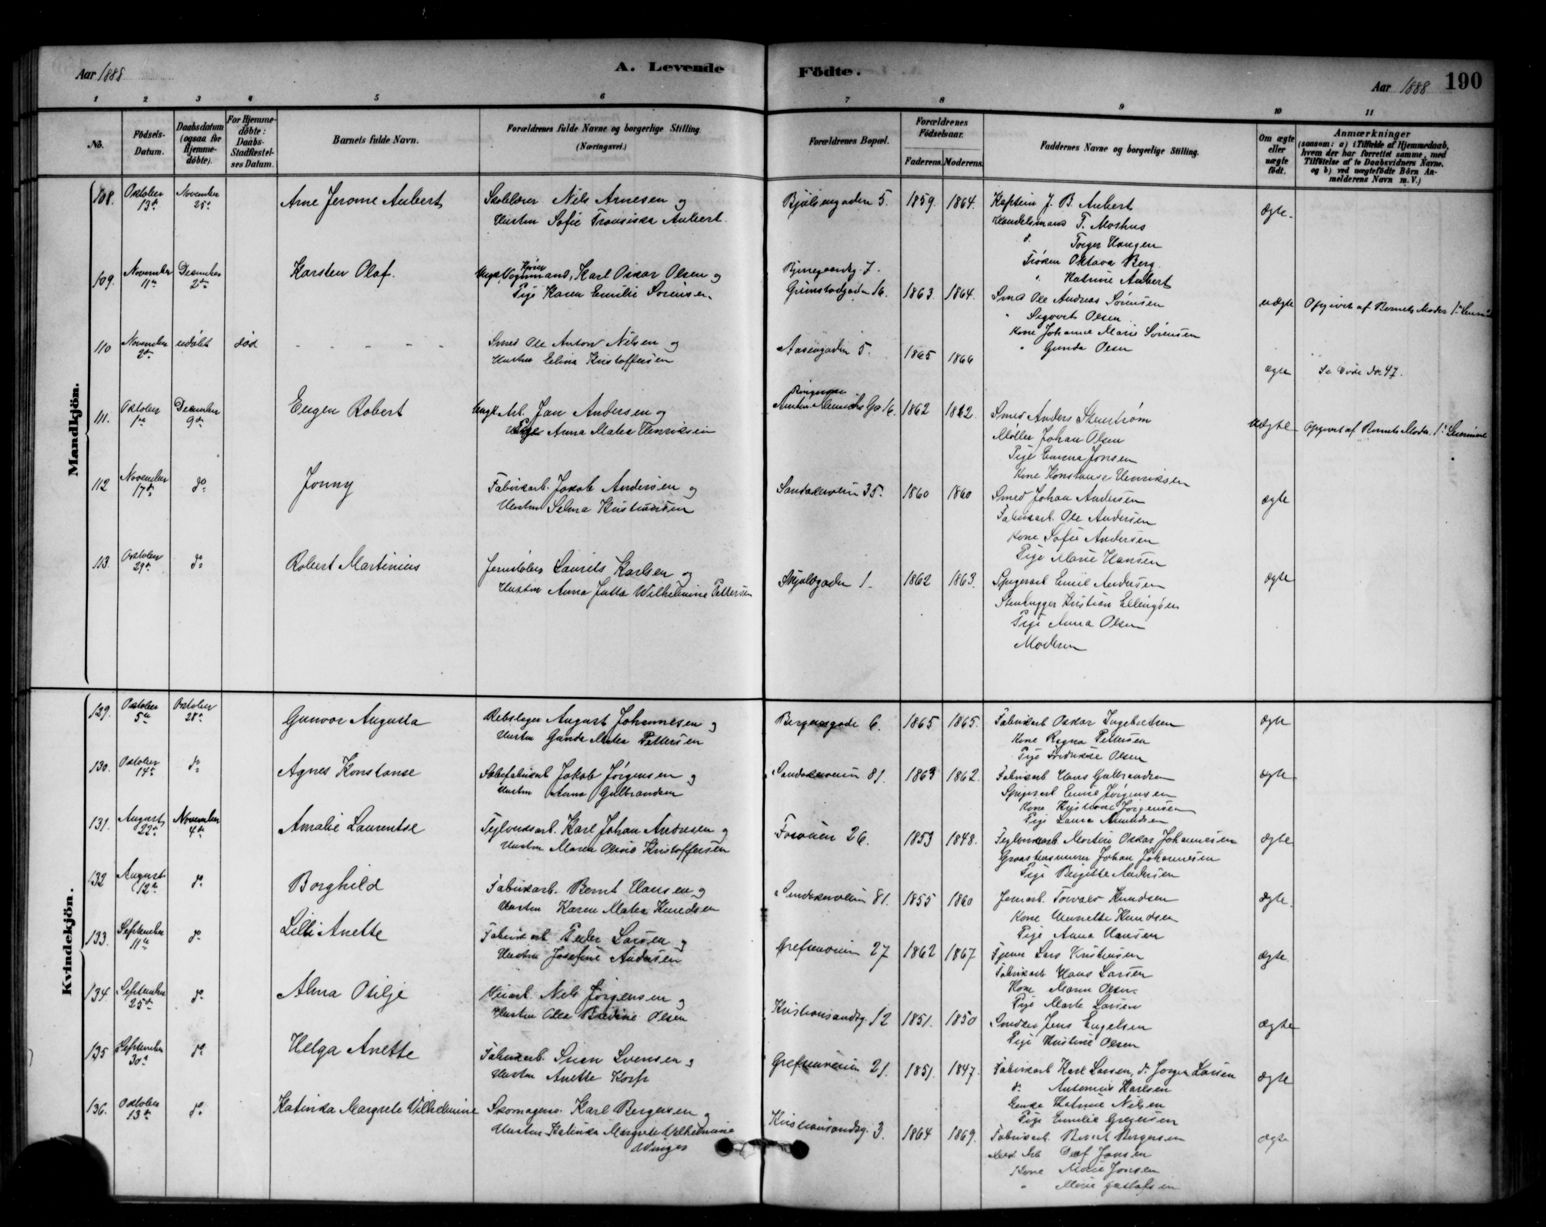 Aar 1888
A. Levende
Födte.
Aar 1888
190
1 2 3 4 5 6 7 8 9 10 11
No.
Födsels-Datum.
Daabsdatum (ogsaa for Hjemmedöbte).
For Hjemmedöbte: Daabs-Stadfæstelses Datum.
Barnets fulde Navn.
Forældrenes fulde Navne og borgerlige Stilling. (Næringsvei.)
Forældrenes Bopæl.
Forældrenes Födselsaar.
Faderens. Moderens.
Faddernes Navne og borgerlige Stilling.
Om ægte eller uægte födt.
Anmærkninger
(saasom: a) i Tilfælde af Hjemmedaab, hvem der har forrettet samme, med Tilföielse af to Daabsvidners Navne, og b) ved uægtefödte Börn Anmelderens Navn m. V.)
Mandkjön.
108. Oktober 13de November 25de Arne Jerome Aubert
Skolelærer Nils Arnesen og
Hustru Sofie Fransiska Aubert
Bjølsengaden 5. 1859. 1864.
Kaptein J. B. Aubert
Handelsmand T. Moshus
do Torger Haugen
Frøken Oktava Berg
" Katrine Aubert
ægte.
109. November 11te December 2den Karsten Olaf.
Karl Oskar Olsen og
Pige Karen Emilie Sørensen
Grimstadgaden 16. 1863. 1864.
Smed Ole Andreas Sørensen
" Sigvart Olsen
Kone Johanne Marie Sørensen
" Gunda Olsen
uægte Opgivet af Barnets Moder
110 November 2den udöbt död - - - - -
Smed Ole Anton Nilsen og
Hustru Elina Kristoffersen
Aasengaden 5. 1865 1866
ægte Se Döde No 47.
111. Oktober 1ste December 9de Eugen Robert
Ugift Arb. Jan Andersen og
Pige Anna Matea Henriksen
1862
Smed Anders Stenstrøm
Møller Johan Olsen
Pige Emma Jonsen
Kone Konstanse Henriksen
uægte Opgivet af Barnets Moder.
112 November 17de do Jonny
Fabrikarb. Jakob Andersen og
Hustru Selma Kristiansen
Sandakerveien 35. 1860 1860
Smed Johan Andersen
Fabrikarb Ole Andersen
Kone Sofie Andersen
Pige Marie Hansen
ægte
113. Oktober 29de do Robert Martinius
Jernstøber Laurits Karlsen og
Hustru Anna Jutta Wilhelmine Pettersen
Skjoldgaden 1. 1862 1863.
Spigerarb Emil Andersen
Stenhugger Kristian Ellingsen
Pige Anna Olsen
Moderen
ægte
Kvindekjön.
129. Oktober 5te Oktober 28de Gunvor Augusta
Rebslager August Johannesen og
Hustru Gunda Matea Pettersen
Bergensgade 6. 1865 1865.
Fabrikarb Oskar Ingebretsen
Kone Ragna Pettersen
Pige Fredrikke Olsen
ægte
130. Oktober 14de do Agnes Konstanse
Jakob Jörgensen og
Hustru Anna Gulbrandsen
Sandakerveien 81. 1863 1862.
Fabrikarb Hans Gulbrandsen
Spigerarb Emil Jörgensen
Kone Kristine Jørgensen
Pige Laura Amundsen
ægte
131. August 22de November 4de Amalie Laurentse
Teglværksarb. Karl Johan Andresen og
Hustru Maren Olivie Kristoffersen
26. 1853 1848.
Teglværksarb Martin Oskar Johannesen
Johan Johannesen
Pige Birgitte Andersen
ægte
132 August 12te do Borghild
Fabrikarb. Bernt Hansen og
Hustru Karen Matea Knudsen
Sandakerveien 81. 1855 1860
Jernarb. Torvald Knudsen
Kone Annette Knudsen
Pige Anna Hansen
ægte.
133. September 11te do Lilli Anette
Fabrikarb Peder Larsen og
Hustru Josefine Andersen
Grefsenveien 27 1862 1867.
Lars Kristiansen
Fabrikarb Hans Larsen
Kone Maren Olsen
Pige Marte Larsen
ægte
134. September 25de do Alma Otilje
Veiarb. Nils Jörgensen og
Hustru Olea Bredine Olsen
Kristiansandsg 12 1851. 1850
Snedker Jens Engelsen
Pige Kristine Olsen
ægte
135 September 30te do Helga Anette
Fabrikarb Sven Svensen og
Hustru Anette Korp
Grefsenveien 21. 1851. 1847.
Fabrikarb Karl Larsen, do Jörgen Larsen
do Antonius Karlsen
Enke Katrine Nilsen
Pige Emilie Gregersen
ægte
136. Oktober 13de do Katinka Margrete Vilhelmine
Skomagersv. Karl Bergersen og
Hustru Katinka Margrete Vilhelmine
Winger
Kristiansandsg 3. 1864 1869.
Fabrikarb. Bernt Bergersen
Olaf Jonsen
Kone Marie Jonsen
" Marie Gustafsen
ægte